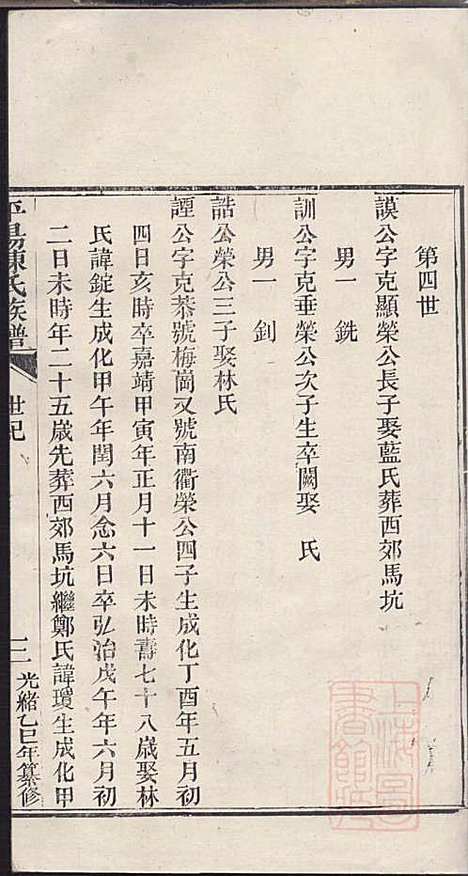 第四世
謨公字克顯榮公長子娶藍氏葬西郊馬坑
男一 銑
訓公字克垂榮公次子生卒闕娶 氏
男一 釗
誥公榮公三子娶林氏
諲公字克恭號梅崗又號南衢榮公四子生成化丁酉年五月初
四日亥時卒嘉靖甲寅年正月十一日未時壽七十八歲娶林
氏諱錠生成化甲午年閏六月念六日卒弘治戊午年六月初
二日未時年二十五歲先葬西郊馬坑繼鄭氏諱瓊生成化甲
平陽陳氏族譜 世紀 三 光緒乙巳年纂修
上海圖書館藏